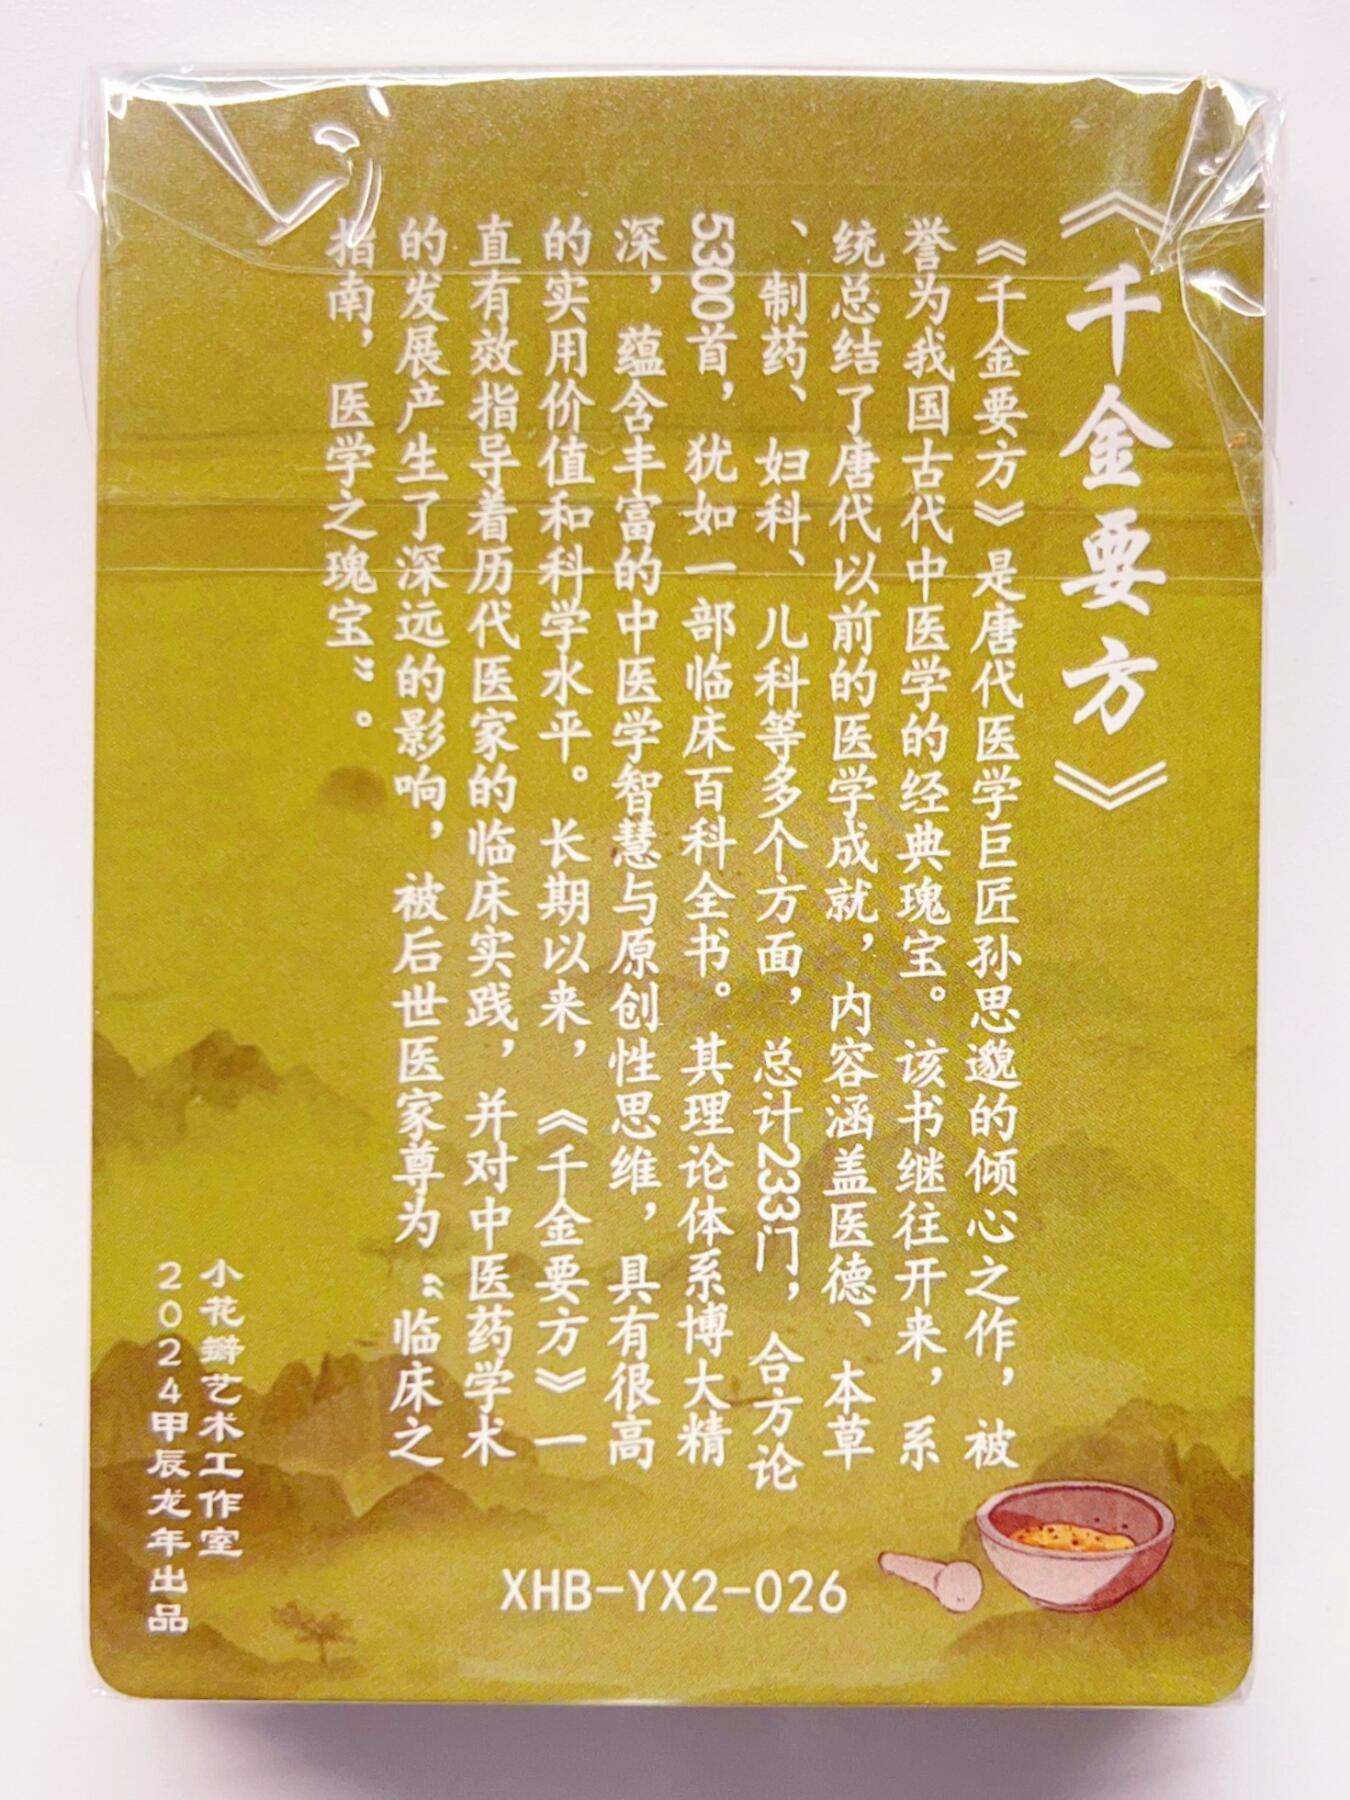 《千金要方》
《千金要方》是唐代医学巨匠孙思邈的倾心之作，被
誉为我国古代中医学的经典瑰宝。该书继往开来，系
统总结了唐代以前的医学成就，内容涵盖医德、本草
、制药、妇科、儿科等多个方面，总计233门，合方论
5300首，犹如一部临床百科全书。其理论体系博大精
深，蕴含丰富的中医学智慧与原创性思维，具有很高
的实用价值和科学水平。长期以来，《千金要方》一
直有效指导着历代医家的临床实践，并对中医药学术
的发展产生了深远的影响，被后世医家尊为“临床之
指南，医学之瑰宝”。
小花瓣艺术工作室
2024甲辰龙年出品
XHB-YX2-026